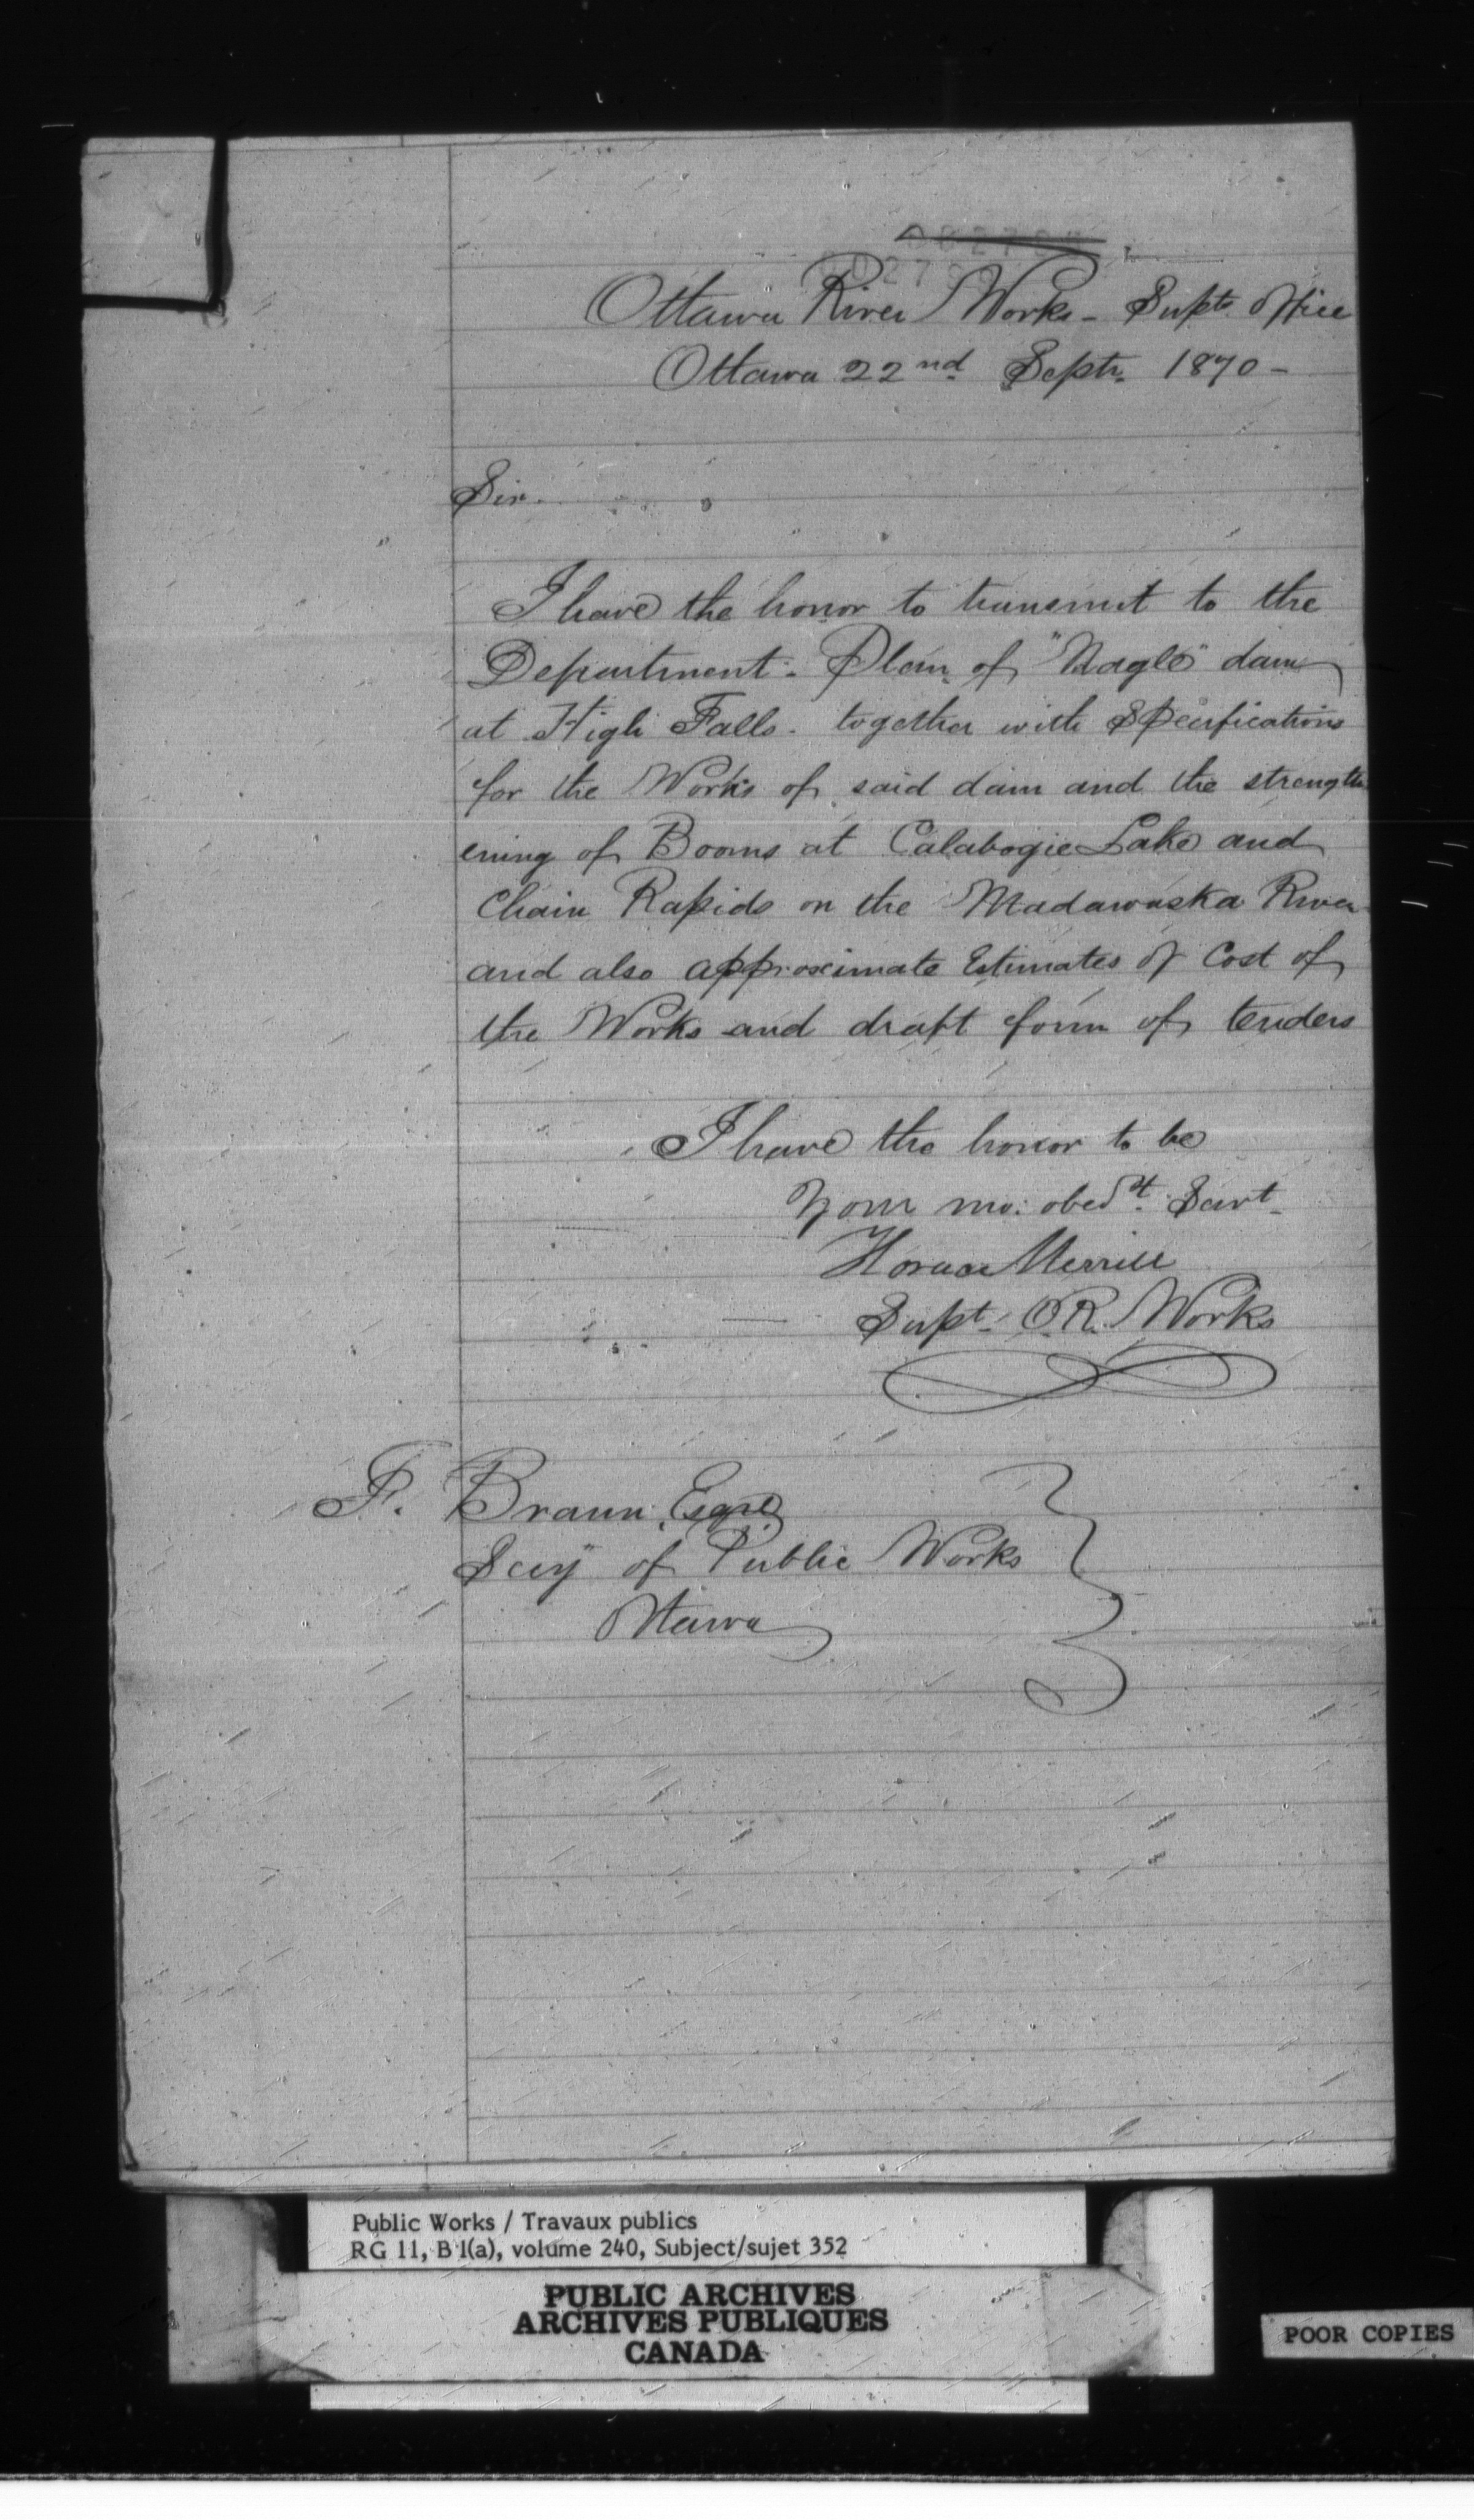 Ottawa River Works - Supts Office
Ottawa 22nd Septr. 1870 -
Sir.
I have the honor to transmit to the
Department - Plan of "Nagle" dam
at High Falls. together with Specifications
for the Works of said dam and the strength
ening of Booms at Calabogie Lake and
Chain Rapids on the Madawaska River
and also approximate Estimates of Cost of
the Works and draft form of tenders
I have the honor to be
Your mo: obedt. Servt.
Horace Merrill
Supt. O.R. Works
F. Braun, Esqre
Secy of Public Works
Ottawa
Public Works / Travaux publics
RG 11, B 1(a), volume 240, Subject/sujet 352
PUBLIC ARCHIVES
ARCHIVES PUBLIQUES
CANADA
POOR COPIES